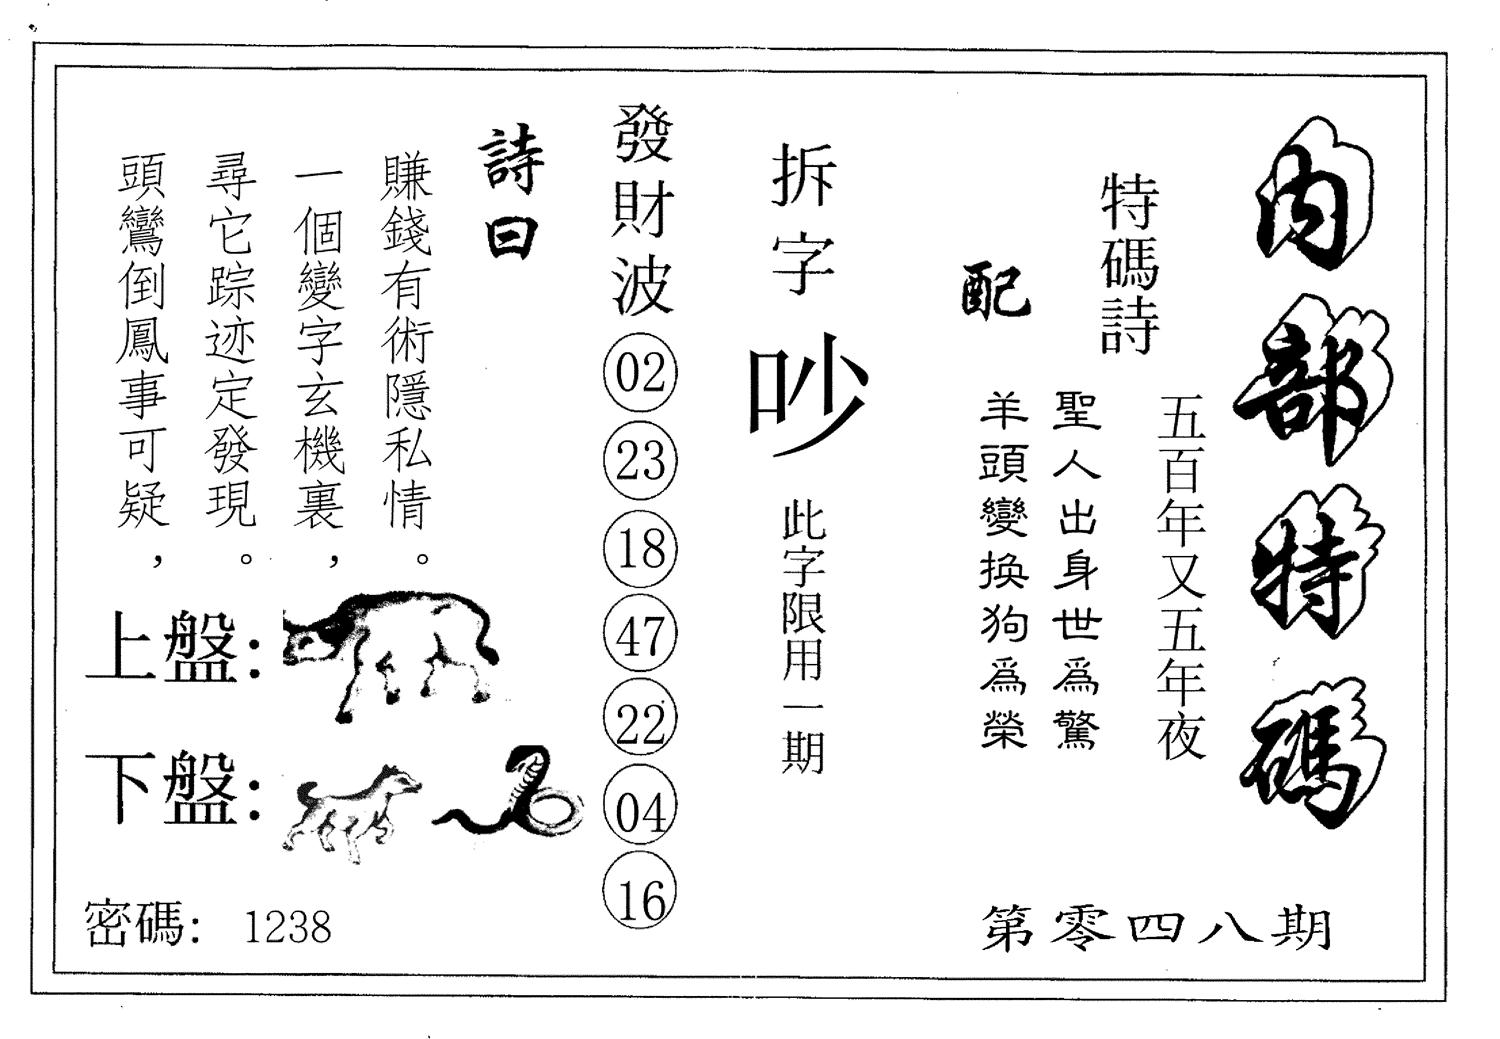 內部特碼
第零四八期
特碼詩
五百年又五年夜
配
聖人出身世爲驚
羊頭變換狗爲榮
拆字
吵
此字限用一期
發財波
02
23
18
47
22
04
16
詩曰
賺錢有術隱私情。
一個變字玄機裏,
尋它踪迹定發現。
頭鸞倒鳳事可疑,
上盤:
下盤:
密碼: 1238